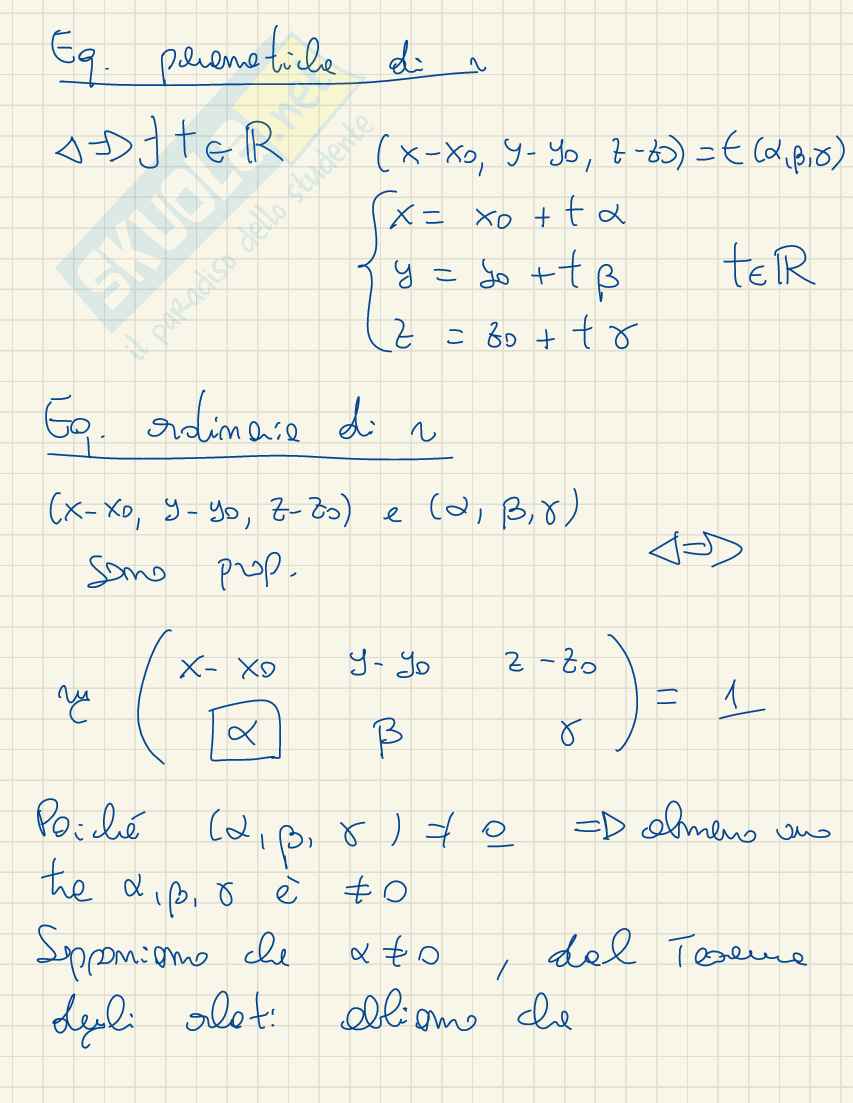 Eq. parametriche di r
⇔ ∃ t ∈ ℝ (x-x0, y-y0, z-z0) = t (α, β, γ)
{ x = x0 + t α
y = y0 + t β t ∈ ℝ
z = z0 + t γ
Eq. ordinaria di r
(x-x0, y-y0, z-z0) e (α, β, γ)
sono prop. ⇔
rg ( x-x0 y-y0 z-z0
α β γ ) = 1
Poiché (α, β, γ) ≠ 0 => almeno uno
tra α, β, γ è ≠ 0
Supponiamo che α ≠ 0, dal Teorema
degli orlati abbiamo che
SKUOLA.net
il paradiso dello studente